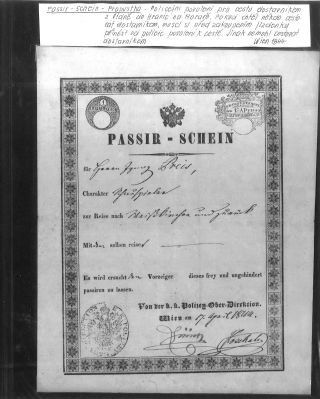 Passir - Schein - Propustka - Policejní povolení pro cestu dostavníkem
z Vídně do Hranic na Moravě. Pokud chtěl někdo cestovat
dostavníkem, musel si před zakoupením jízdenky
na policii povolení k cestě. Jinak nemohl cestovat
dostavníkem Wien 1844.
PASSIR - SCHEIN
für Herrn Ignaz Preis,
Charakter Schauspieler
zur Reise nach Weißkirchen und zurück.
Mit selben reiset
Es wird ersucht den Vorzeiger dieses frey und ungehindert
passiren zu lassen.
Von der k. k. Polizey-Ober-Direktion.
Wien am 17. April 1844.